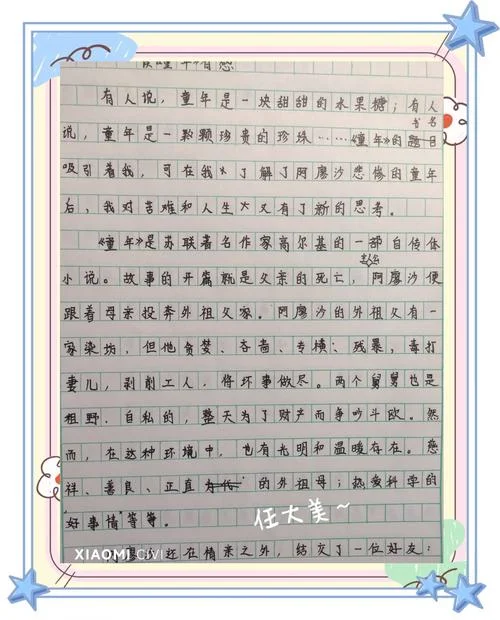 读《童年》有感
有人说，童年是一块甜甜的水果糖；有人
说，童年是一颗颗珍贵的珍珠……《童年》的题目
书名
吸引着我，可在我了解了阿廖沙悲惨的童年
后，我对苦难和人生又有了新的思考。
《童年》是苏联著名作家高尔基的一部自传体
小说。故事的开篇就是父亲的死亡，阿廖沙便
跟着母亲投奔外祖父家。阿廖沙的外祖父有一
家染坊，但他贪婪、吝啬、专横、残暴，毒打
妻儿，剥削工人，将坏事做尽。两个舅舅也是
粗野、自私的，整天为了财产而争吵斗殴。然
而，在这种环境中，也有光明和温暖存在。慈
祥、善良、正直的外祖母；热爱科学的
好事情等等。
任大美~
阿廖沙还在情亲之外，结交了一位好友：
XIAOMI CIVI